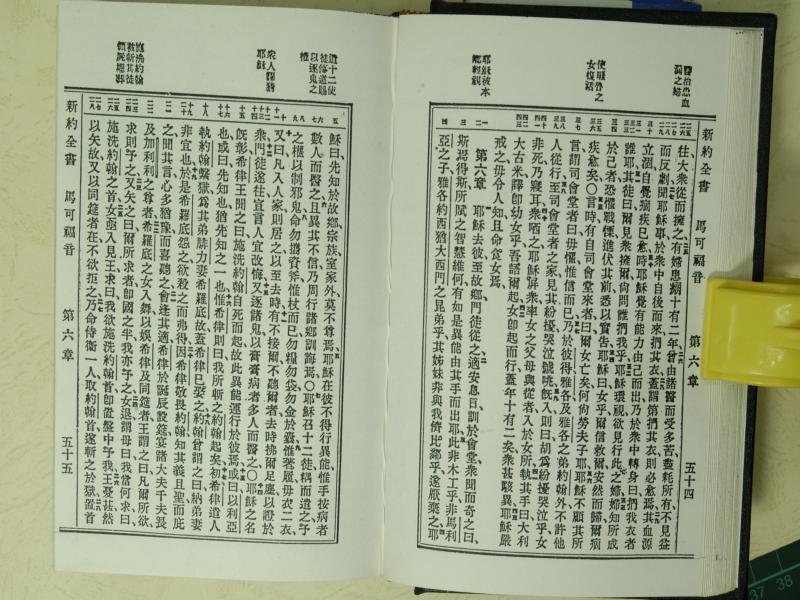 醫治患血
漏之婦
使睚魯之
女復活
耶穌被本
鄉輕視
新約全書 馬可福音 第六章 五十四
往大衆從而擁之有婦患漏十有二年曾由諸醫而受多苦盡耗所有不見益
而反劇聞耶穌事於衆中自後而來捫其衣蓋謂第捫其衣則必愈焉其血源
立涸自覺痼疾已愈時耶穌覺有能力由己而出乃於衆中轉身曰捫我衣者
誰耶其徒曰爾見衆擁爾尙問誰捫我乎耶穌環視欲見行此之婦婦知所成
於己者恐懼戰慄進伏其前悉以實告耶穌曰女乎爾信救爾安然而歸爾痼
疾愈矣〇言時有自司會堂者來曰爾女亡矣何尙勞夫子耶耶穌不顧其所
言謂司會堂者曰毋懼惟信而已乃於彼得雅各及雅各之弟約翰外不許他
人從行至司會堂者之家見其紛擾哭泣號咷旣入則曰胡爲紛擾哭泣乎女
非死乃寢耳衆哂之耶穌屛衆率女之父母與從者入於女所執其手曰大利
大古米譯卽幼女乎吾語爾起女卽起而行蓋年十有二矣衆甚駭異耶穌嚴
戒之毋令人知且命食女焉
第六章 耶穌去彼至故鄉門徒從之適安息日訓於會堂衆聞而奇之曰、
斯焉得斯所賦之智慧維何有如是異能由其手而出耶此非木工乎非馬利
亞之子雅各約西猶大西門之昆弟乎其姊妹非與我儕比鄰乎遂厭棄之耶
遣十二使
徒傳道賜
以逐鬼之
權
衆人譯猜
耶穌
施洗約翰
新約全書 馬可福音 第六章 五十五
穌曰先知於故鄉宗族室家外莫不尊焉耶穌在彼不得行異能惟手按病者
數人而醫之且異其不信乃周行諸鄉訓誨焉〇耶穌召十二徒耦而遣之予
之權以制邪鬼命勿攜資斧惟杖而已勿糧勿袋勿金於囊惟著履毋衣二衣
又曰凡入人家則居之以至去時有不接爾不聽爾者去時拂爾足塵以證於
衆門徒遂往宣言人宜改悔又逐諸鬼以膏膏病者多人而醫之〇耶穌之名
旣彰希律王聞之曰施洗約翰自死而起故此異能運行於彼焉或曰以利亞
也或曰先知也猶先知之一也惟希律則曰我所斬之約翰起矣初希律遣人
執約翰繫獄爲其弟腓力妻希羅底故蓋希律已娶之約翰曾謂之曰納弟妻
非宜也於是希羅底怨之欲殺之而弗得因希律敬畏約翰知其義且聖而庇
之聞其言心多猶豫而喜聽之會逢其適希律於誕辰設筵宴諸大夫千夫長
及加利利之尊者希羅底之女入舞以娛希律及同筵者王謂之曰凡爾所欲
求則予之又矢之曰爾所求者卽國之半我亦予之女退謂母曰我當何求曰
施洗約翰之首女亟入見王求曰我欲施洗約翰首卽置盤中予我王憂甚然
以矢故又以同筵者在不欲拒之乃命侍衞一人取約翰首遂斬之於獄置首